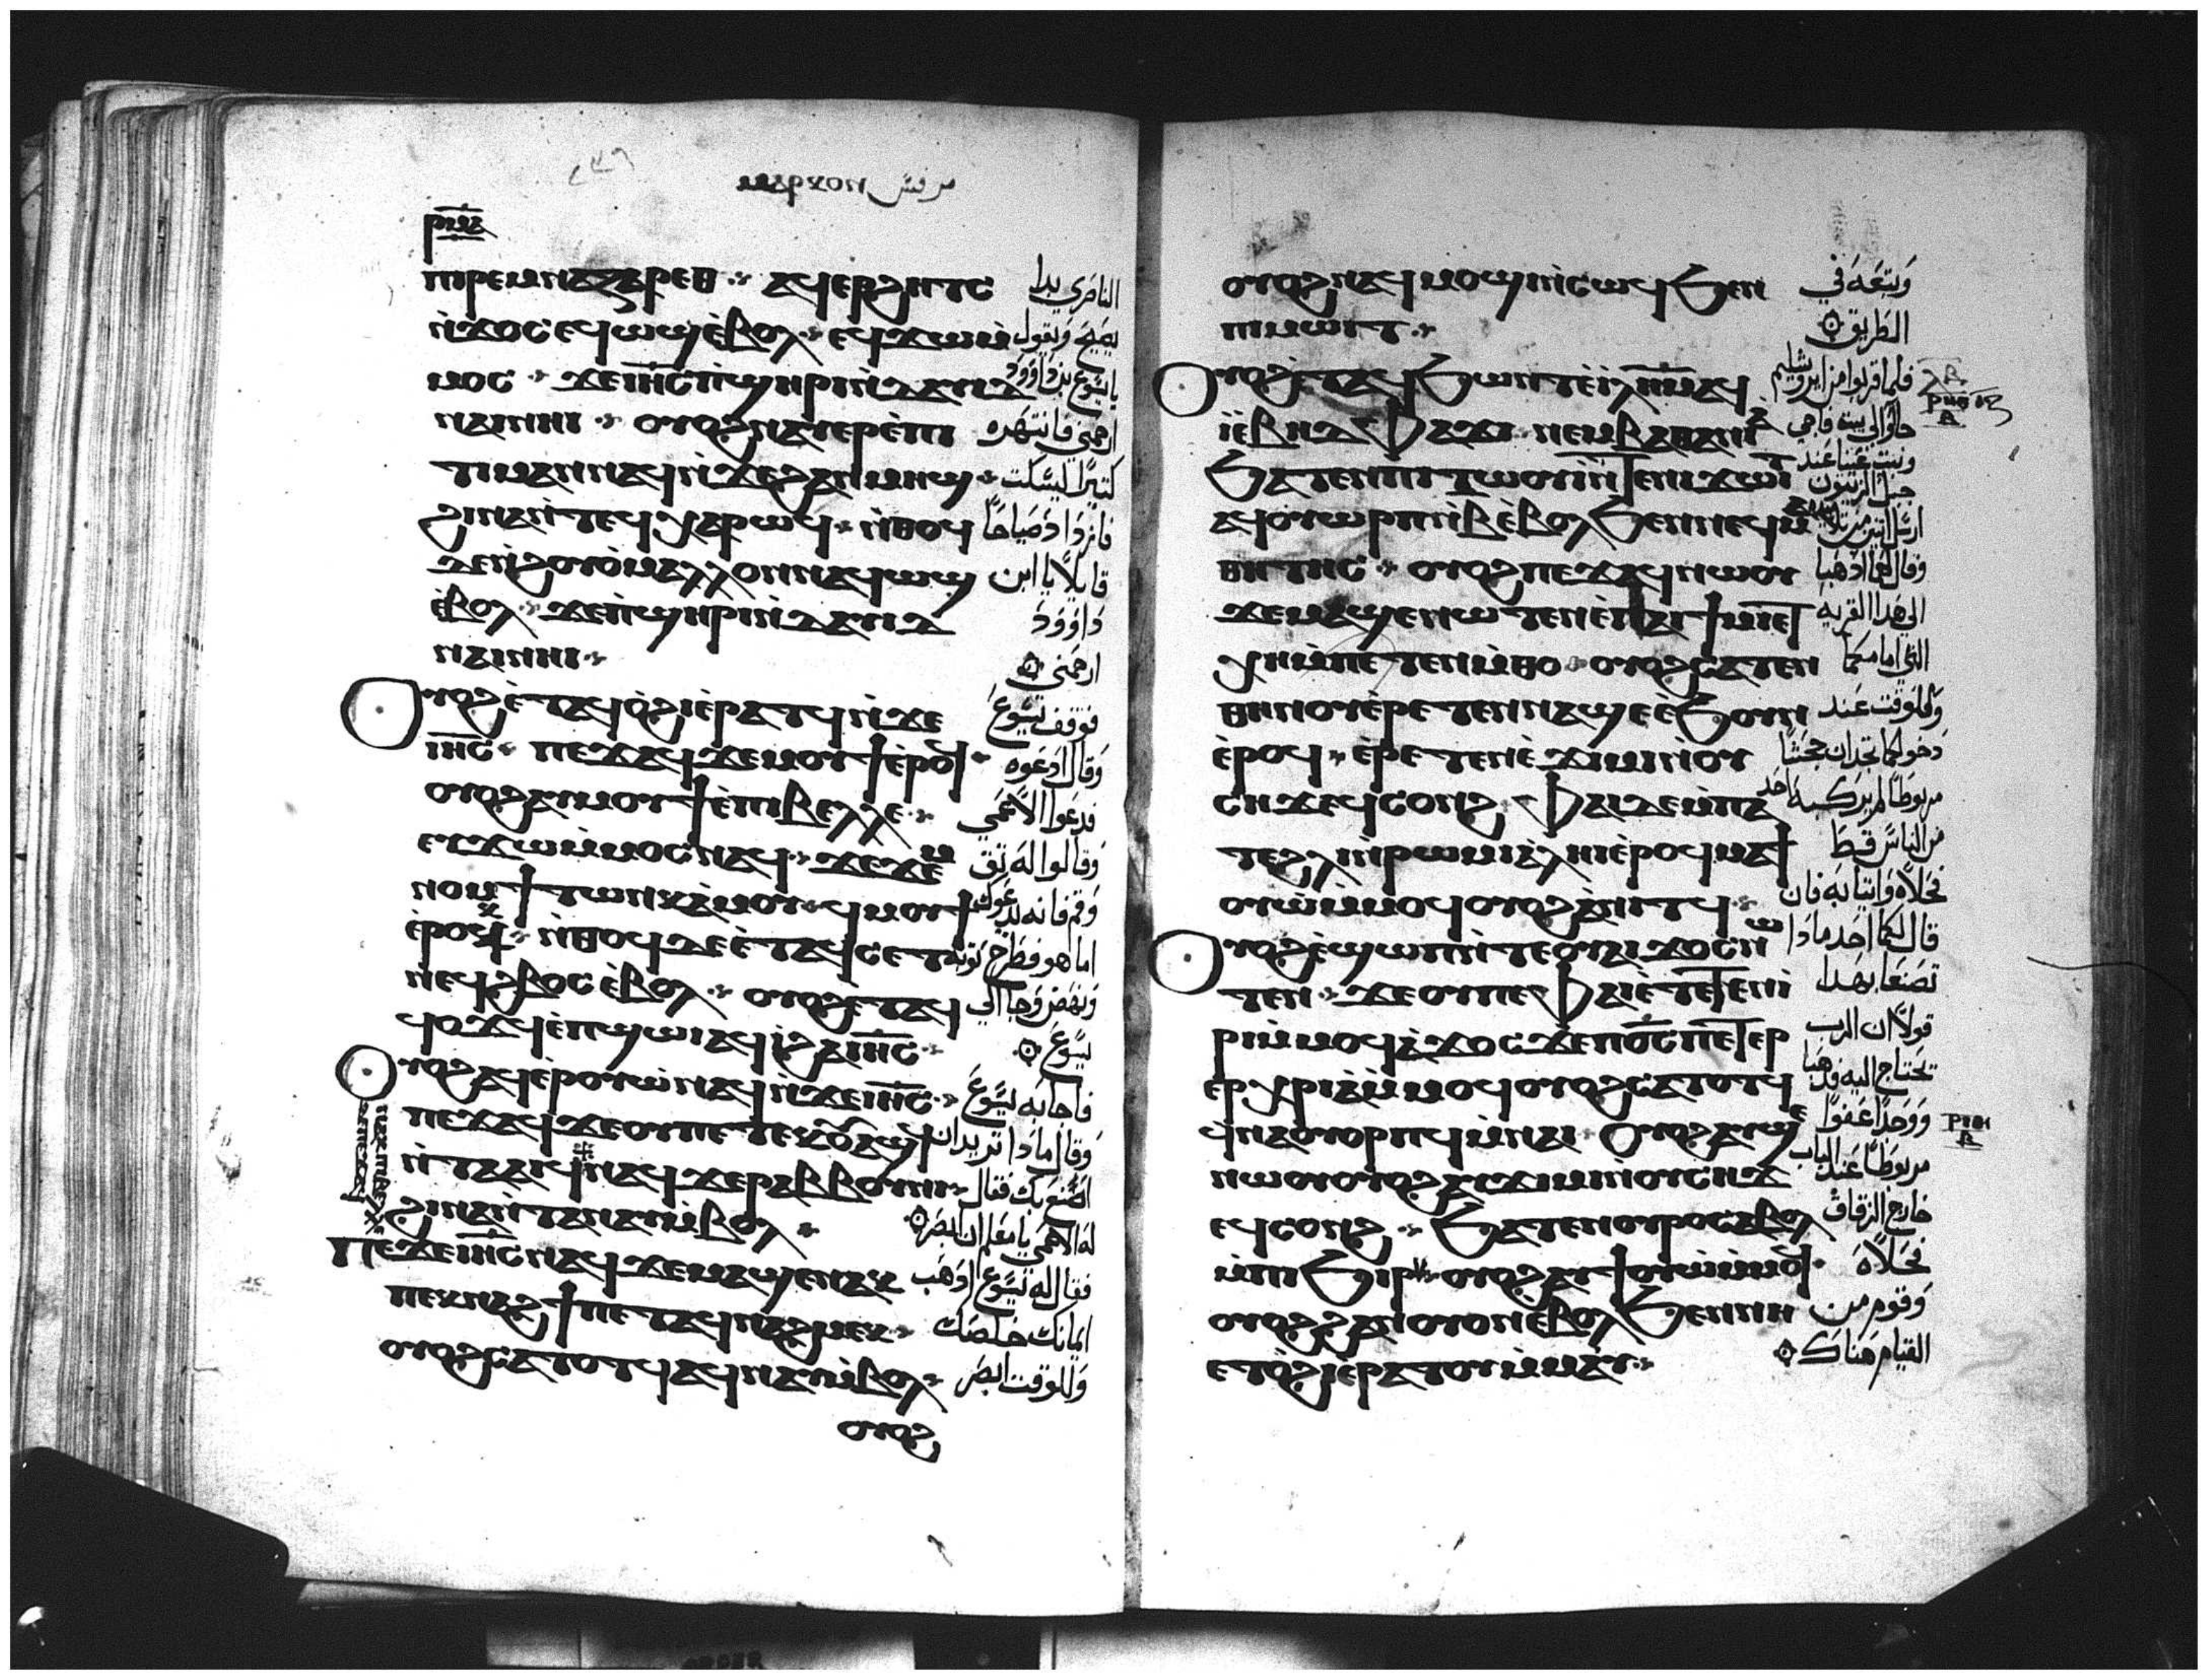 ⲣⲓⲙⲁ
ⲡⲓⲣⲉⲙⲛⲁⲍⲁⲣⲉⲑ ⲁϥⲉⲣϩⲏⲧⲥ الناصري بدا
ⲛ̀ϫⲟⲥ ⲉϥⲱϣ ⲉ̀ⲃⲟⲗ ⲉϥϫⲱ ⲙ̀ يصيح ويقول
ⲙⲟⲥ ϫⲉ ⲓⲏ̅ⲥ̅ ⲡ̀ϣⲏⲣⲓ ⲛ̀ⲇⲁⲩⲓⲇ يا يسوع بن داوود
ⲛⲁⲓ ⲛⲏⲓ ⲟⲩⲟϩ ⲛⲁⲩⲉⲣⲉ̀ⲡⲓ ارحمني فانتهره
ⲧⲓⲙⲁⲛ ⲛⲁϥ ⲛ̀ϫⲉ ϩⲁⲛⲙⲏϣ كتيرا ليسكت
ϩⲓⲛⲁ ⲛ̀ⲧⲉϥⲭⲁⲣⲱϥ ⲛ̀ⲑⲟϥ فازداد صياحا
ⲇⲉ ⲛ̀ϩⲟⲩⲟ̀ ⲙⲁⲗⲗⲟⲛ ⲛⲁϥⲱϣ قايلا يا ابن
ⲉ̀ⲃⲟⲗ ϫⲉ ⲡ̀ϣⲏⲣⲓ ⲛ̀ⲇⲁⲩⲓⲇ داوود
ⲛⲁⲓ ⲛⲏⲓ ارحمني
ⲟⲩⲟϩ ⲉ̀ⲧⲁϥⲟ̀ϩⲓ ⲉ̀ⲣⲁⲧϥ ⲛ̀ϫⲉ فوقف يسوع
ⲓⲏ̅ⲥ̅ ⲡⲉϫⲁϥ ϫⲉ ⲙⲟⲩϯ ⲉ̀ⲣⲟϥ وقال ادعوه
ⲟⲩⲟϩ ⲁⲩⲙⲟⲩϯ ⲉ̀ⲡⲓⲃⲉⲗⲗⲉ فدعوا الاعمي
ⲉⲩϫⲱ ⲙ̀ⲙⲟⲥ ⲛⲁϥ ϫⲉ ϫⲉⲙ وقالوا له تق
ⲛⲟⲙϯ ⲧⲱⲛⲕ ⲙ̀ⲙⲟⲩ ϥⲙⲟⲩϯ وقم فانه يدعوك
ⲉ̀ⲣⲟⲕ ⲛ̀ⲑⲟϥ ⲇⲉ ⲉ̀ⲧⲁϥⲥⲉⲧ اما هو فطرح توبه
ⲛⲉϥϩⲃⲟⲥ ⲉ̀ⲃⲟⲗ ⲟⲩⲟϩ ⲉⲧⲁϥ ونهض وجا الي
ϥⲟϫϥ ⲉ̀ⲡϣⲱⲓ ⲁϥⲓ̀ ϩⲁ ⲓⲏ̅ⲥ̅ يسوع
ⲟⲩⲟϩ ⲁϥⲉ̀ⲣⲟⲩⲱ̀ ⲛⲁϥ ⲛ̀ϫⲉ ⲓⲏ̅ⲥ̅ فاجابه يسوع
ⲡⲉϫⲁϥ ϫⲉ ⲟⲩ ⲡⲉⲧⲉⲕⲟⲩⲁϣϥ وقال مادا تريد ان
ⲛ̀ⲧⲁⲁⲓϥ ⲛⲁⲕ ϫⲉ ⲣⲁⲃⲃⲟⲩⲛⲓ اصنع بك فقال
ϩⲓⲛⲁ ⲛ̀ⲧⲁⲛⲁⲩ ⲙ̀ⲃⲟⲗ له الاعمي يا معلم ان ابصر
ⲡⲉϫⲉ ⲓⲏ̅ⲥ̅ ⲛⲁϥ ϫⲉ ⲙⲁϣⲉⲛⲁⲕ فقال له يسوع ادهب
ⲡⲉⲕⲛⲁϩϯ ⲡⲉⲧⲁϥⲛⲁϩⲙⲉⲕ ايمانك خلصك
ⲟⲩⲟϩ ⲥⲁⲧⲟⲧϥ ⲁϥⲛⲁⲩ ⲙ̀ⲃⲟⲗ وللوقت ابصر
ⲟⲩⲟϩ
ⲟⲩⲟϩ ⲛⲁϥⲙⲟϣⲓ ⲛ̀ⲥⲱϥ ϧⲉⲛ وتبعه في
ⲡⲓⲙⲱⲓⲧ الطريق
ⲟⲩⲟϩ ⲉ̀ⲧⲁϥϧⲱⲛⲧ ⲉ̀ⲓ̅ⲗ̅ⲏ̅ⲙ̅ ⲁϥ فلما قربوا من ايروشليم
ⲓ̀ ⲉ̀ⲃⲏⲇⲫⲁϫⲏ ⲛⲉⲙ ⲃⲏⲑⲁⲛⲓⲁ جاوا الي بيت فاجي
ϧⲁⲧⲉⲛ ⲡⲓⲧⲱⲟⲩ ⲛ̀ⲧⲉ ⲛⲓϫⲱⲓⲧ وبيت عنيا عند جبل الزيتون
ⲁϥⲟⲩⲱⲣⲡ ⲛ̀ⲃ̅ ⲉ̀ⲃⲟⲗ ϧⲉⲛ ⲛⲉϥⲙⲁ ارسل اتنين من
ⲑⲏⲧⲏⲥ ⲟⲩⲟϩ ⲡⲉϫⲁϥ ⲛⲱⲟⲩ وقال لهما ادهبا
ϫⲉ ⲙⲁϣⲉⲛⲱⲧⲉⲛ ⲉ̀ⲡⲁⲓϯⲙⲓ ⲉⲧ الي هدا القريه
ⲭⲏ ⲙ̀ⲡⲉⲧⲉⲛⲙ̀ⲑⲟ ⲟⲩⲟϩ ⲥⲁⲧⲉⲛ التي امامكما
ⲑⲏⲛⲟⲩ ⲉ̀ⲣⲉⲧⲉⲛⲛⲁϣⲉ ⲉ̀ϧⲟⲩⲛ وللوقت عند
ⲉ̀ⲣⲟϥ ⲉ̀ⲣⲉⲧⲉⲛⲉ̀ϫⲓⲙⲓ ⲛⲟⲩ دخولكما تجدان جحشا
ⲥⲏϫ ⲉϥⲥⲟⲛϩ ⲫⲁⲓ ⲇⲉ ⲙ̀ⲡⲁ مربوطا لم يركبه احد
ⲧⲉ ϩⲗⲓ ⲛ̀ⲣⲱⲙⲓ ⲁ̀ⲗⲏⲓ ⲉ̀ⲣⲟϥ ⲙⲁϯ من الناس قط
ⲟⲩⲱ̀ ⲙ̀ⲙⲟϥ ⲟⲩⲟϩ ⲁ̀ⲛⲓⲧϥ فحلاه وايتيا به فان
ⲟⲩⲟϩ ⲉ̀ϣⲱⲡ ⲛ̀ⲧⲉ ⲟⲩⲁⲓ ϫⲟⲥ ⲛⲱ قال لكما احد مادا
ⲧⲉⲛ ϫⲉ ⲟⲩ ⲡⲉ ⲫⲁⲓ ⲉ̀ⲧⲉⲧⲉⲛⲓ̀ تصنعا بهدا
ⲣⲓ ⲙ̀ⲙⲟϥ ⲁ̀ϫⲟⲥ ϫⲉ ⲡϭ̅ⲥ̅ ⲡⲉⲧⲉⲣ قولا ان الرب
ⲉⲣⲭⲣⲓⲁ ⲙ̀ⲙⲟϥ ⲟⲩⲟϩ ⲥⲁⲧⲟⲧϥ تحتاج اليه فدهبا
ϥⲛⲁⲟⲩⲟⲣⲡϥ ⲙ̀ⲛⲁⲓ ⲟⲩⲟϩ ⲁⲩϣⲉ ووجدا عفوا
ⲛⲱⲟⲩ ⲟⲩⲟϩ ⲁⲩϫⲓⲙⲓ ⲛ̀ⲟⲩⲥⲏϫ مربوطا عند الباب
ⲉϥⲥⲟⲛϩ ϧⲁⲧⲉⲛ ⲟⲩⲣⲟ ⲥⲁⲃⲟⲗ خارج الزقاق
ⲙ̀ⲡⲓϧⲓⲣ ⲟⲩⲟϩ ⲁⲩϯⲟⲩⲱ̀ ⲙ̀ⲙⲟϥ فحلاه
ⲟⲩⲟϩ ϩⲁⲛⲟⲩⲟⲛ ⲉ̀ⲃⲟⲗ ϧⲉⲛ ⲛⲏ وقوم من
ⲉⲧⲟ̀ϩⲓ ⲉ̀ⲣⲁⲧⲟⲩ ⲙ̀ⲙⲁⲩ القيام هناك